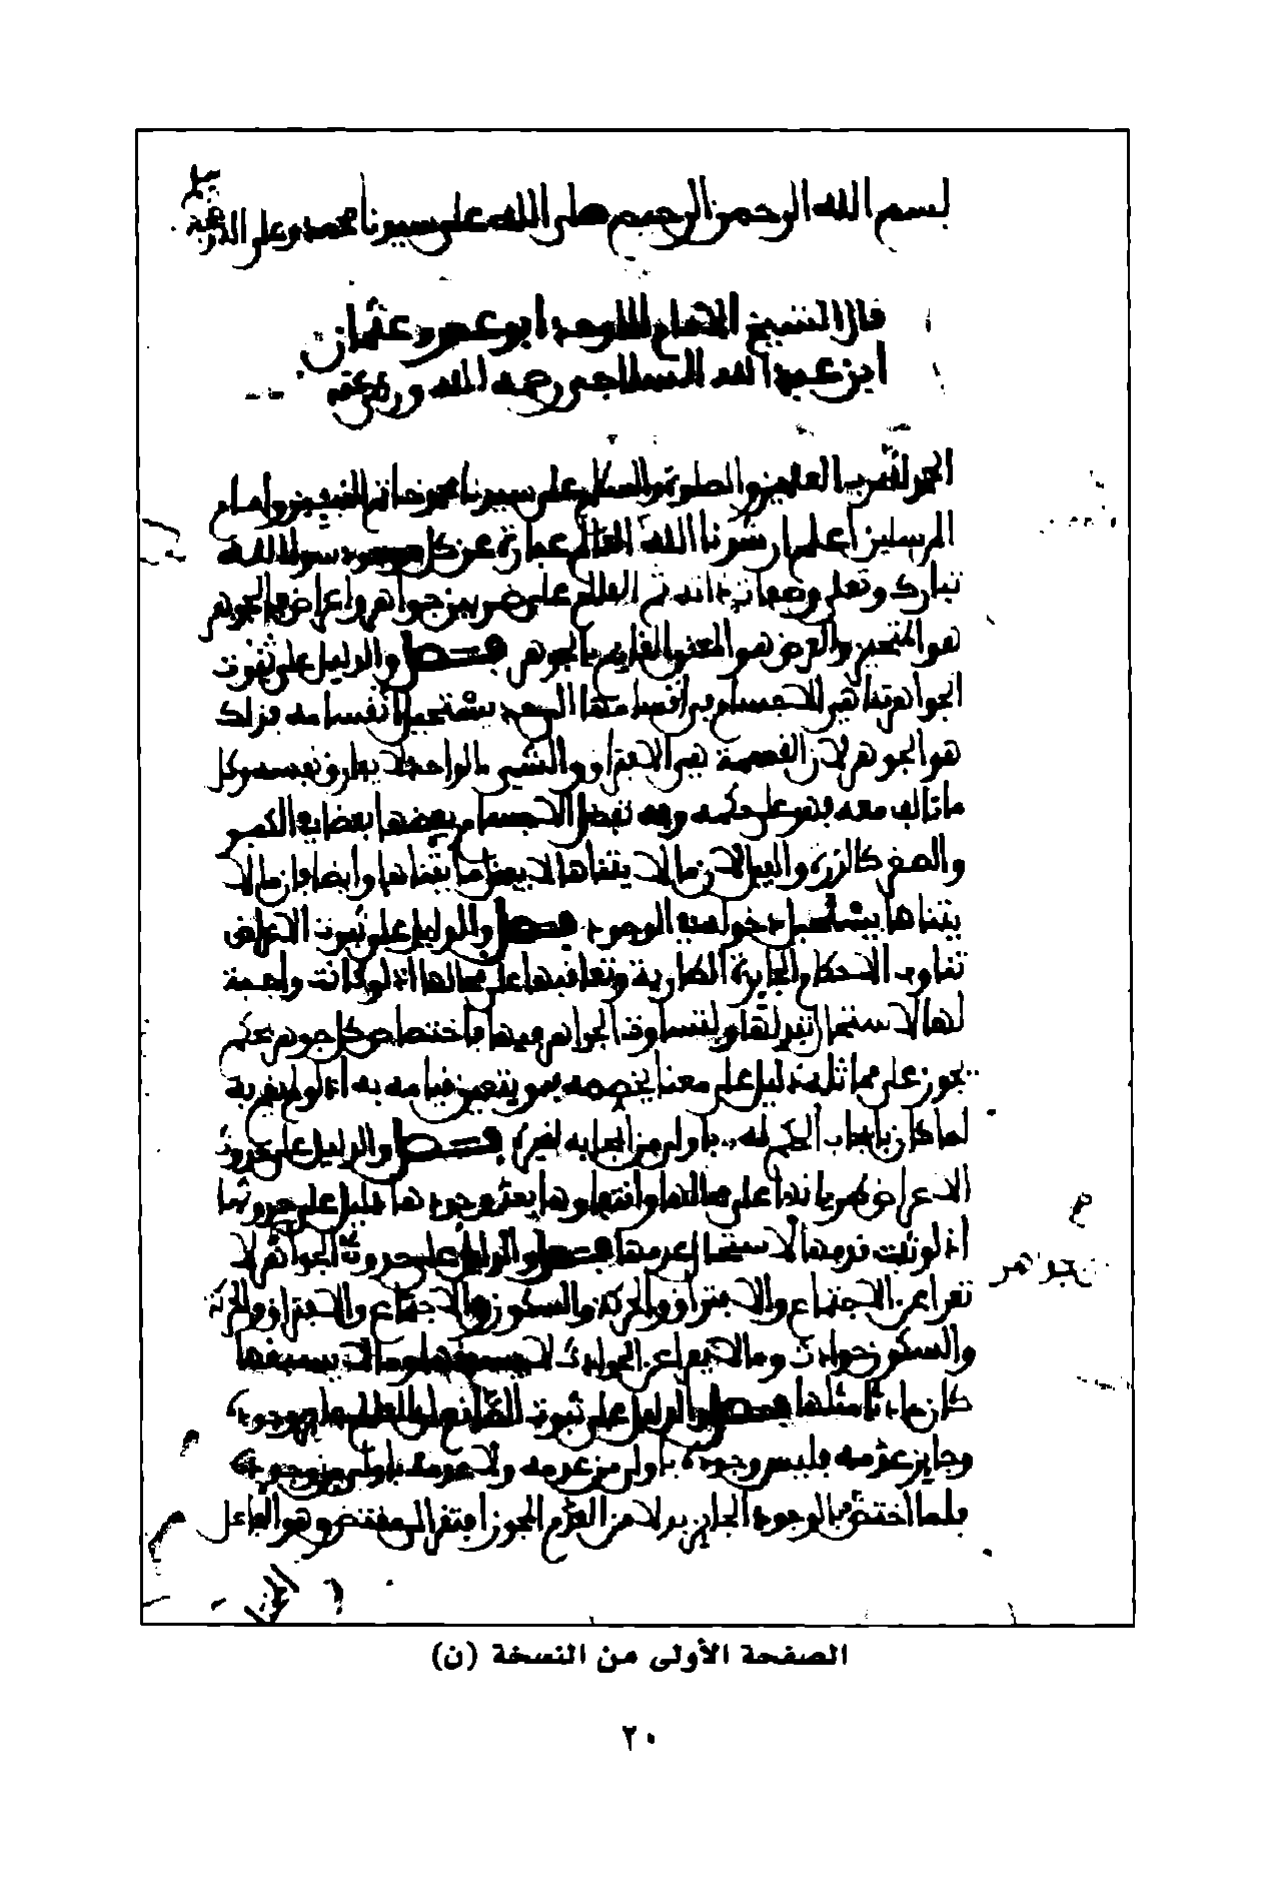 بسم الله الرحمن الرحيم صلى الله على سيدنا محمد وعلى اله وصحبه
قال الشيخ الامام ابو عمرو عثمان
ابن عبد الله السلالجي رحمه الله ورضي عنه
الحمد لله رب العالمين والصلوة والسلام على سيدنا محمد خاتم النبيين وامام
المرسلين اعلم ارشدنا الله ان العالم عبارة عن كل موجود سوى الله
تبارك وتعلى وصفات ذاته ثم العالم على ضربين جواهر واعراض فالجوهر
هو المتحيز والعرض هو المعنى القايم بالجوهر فصل والدليل على ثبوت
الجواهر تناهي الاجسام في انقسامها الى حد يستحيل انقسامه فذلك
هو الجوهر لان القسمة هي الافتراق والشيء الواحد لا يفارق نفسه وكل
ما تالف معه فهو على حكمه وفيه تفضل الاجسام بعضها بعضا في الكبر
والصغر كالذرة والفيل لان ما لا يتناهى لا يفضل ما يتناهى وايضا فان ما لا
يتناهى يستحيل دخوله في الوجود فصل والدليل على ثبوت الاعراض
تناوب الاحكام الجايزة الطارية وتعاقبها على محالها اذ لو كانت واجبة
لها لاستحال تبدلها ولتساوت الجواهر فيها فاختصاص كل جوهر بحكم
يجوز على مماثله دليل على معنى يخصصه به ويتعين قيامه به اذ لو لم يقم به
لما كان بايجاب الحكم له باولى من ايجابه لغيره فصل والدليل على حدوث
الاعراض طريانها على محالها وانتفاؤها بعد وجودها دليل على حدوثها
اذ لو ثبت قدمها لاستحال عدمها فصل والدليل على حدوث الجواهر لا
تعرا عن الاجتماع والافتراق والحركة والسكون والاجتماع والافتراق والحركة
والسكون حوادث وما لا يعرا عن الحوادث لا يسبقها وما لا يسبقها
كان حادثا مثلها فصل والدليل على ثبوت الصانع ان العالم جايز وجوده
وجايز عدمه فليس وجوده باولى من عدمه ولا عدمه باولى من وجوده
فلما اختص بالوجود الجايز بدلا من العدم المجوز افتقر الى مقتض وهو الفاعل
جواهر
الصفحة الأولى من النسخة (ن)
٢٠